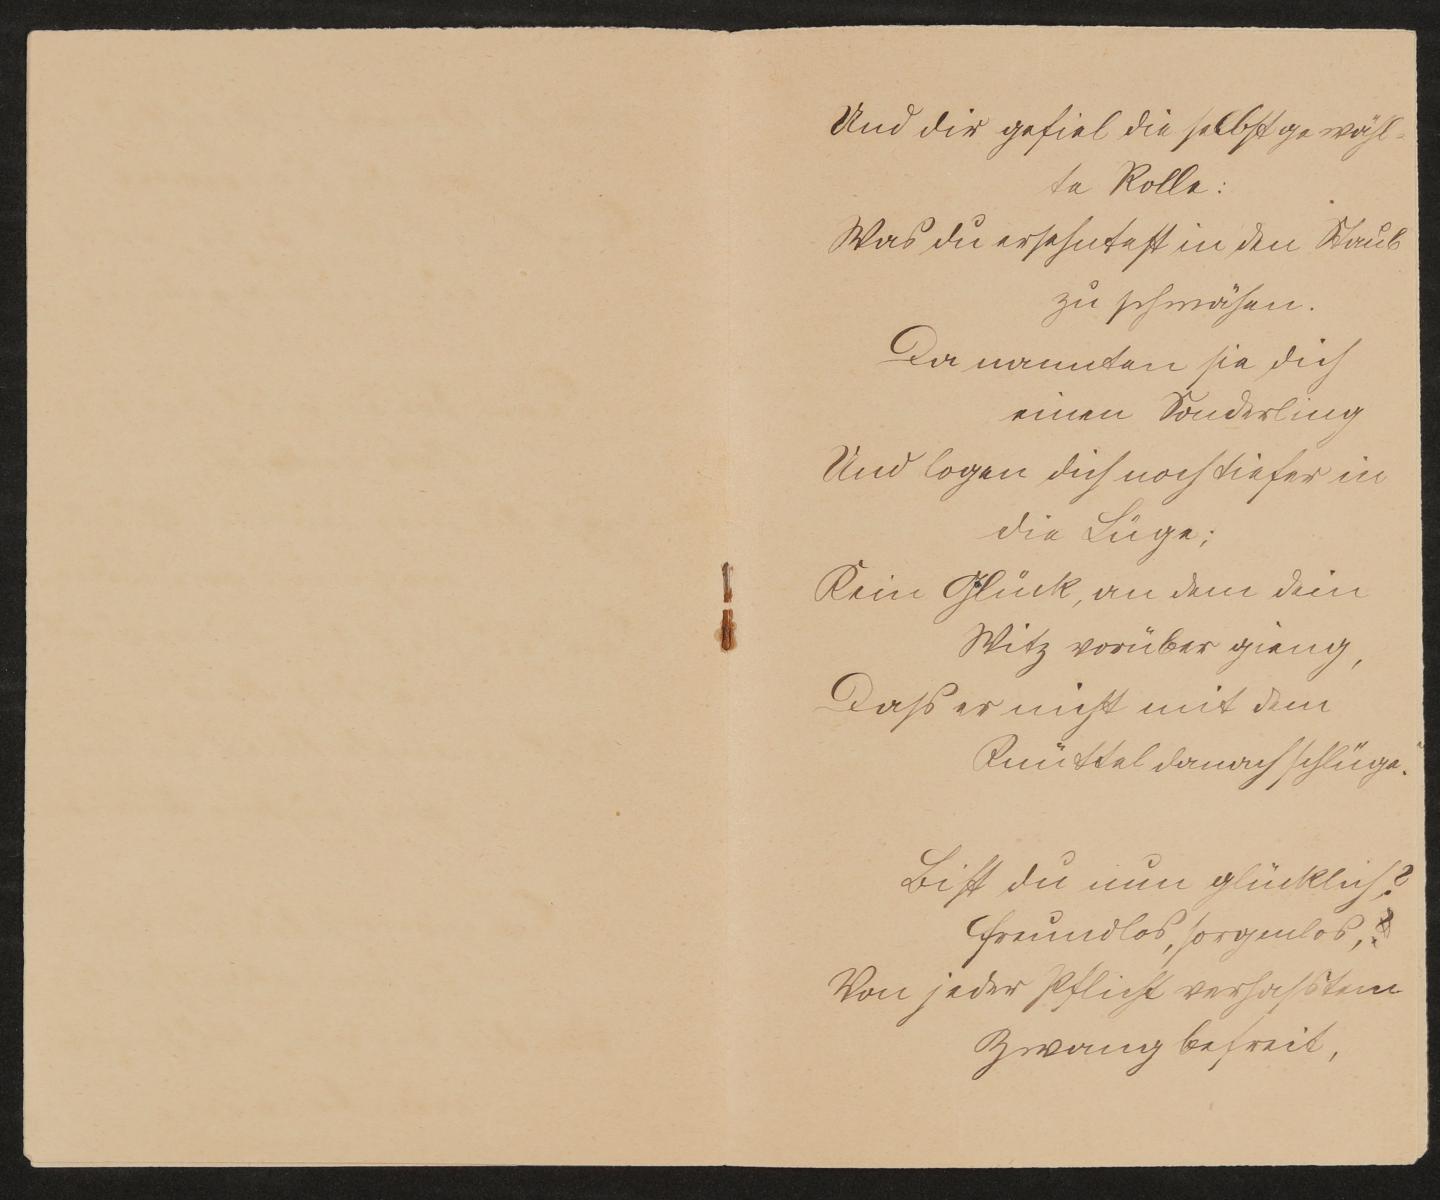 Und dir gefiel die selbstgewähl-
te Rolle:
Was du ersehntest in den Staub
zu schmähen.
Da nannten sie dich
einen Sonderling
Und logen dich noch tiefer in
die Lüge;
Kein Glück, an dem dein
Witz vorüber gieng,
Dass er nicht mit dem
Knüttel danach schlüge."
Bist du nun glücklich?
freundlos, sorgenlos,
Von jeder Pflicht verhasstem
Zwang befreit,